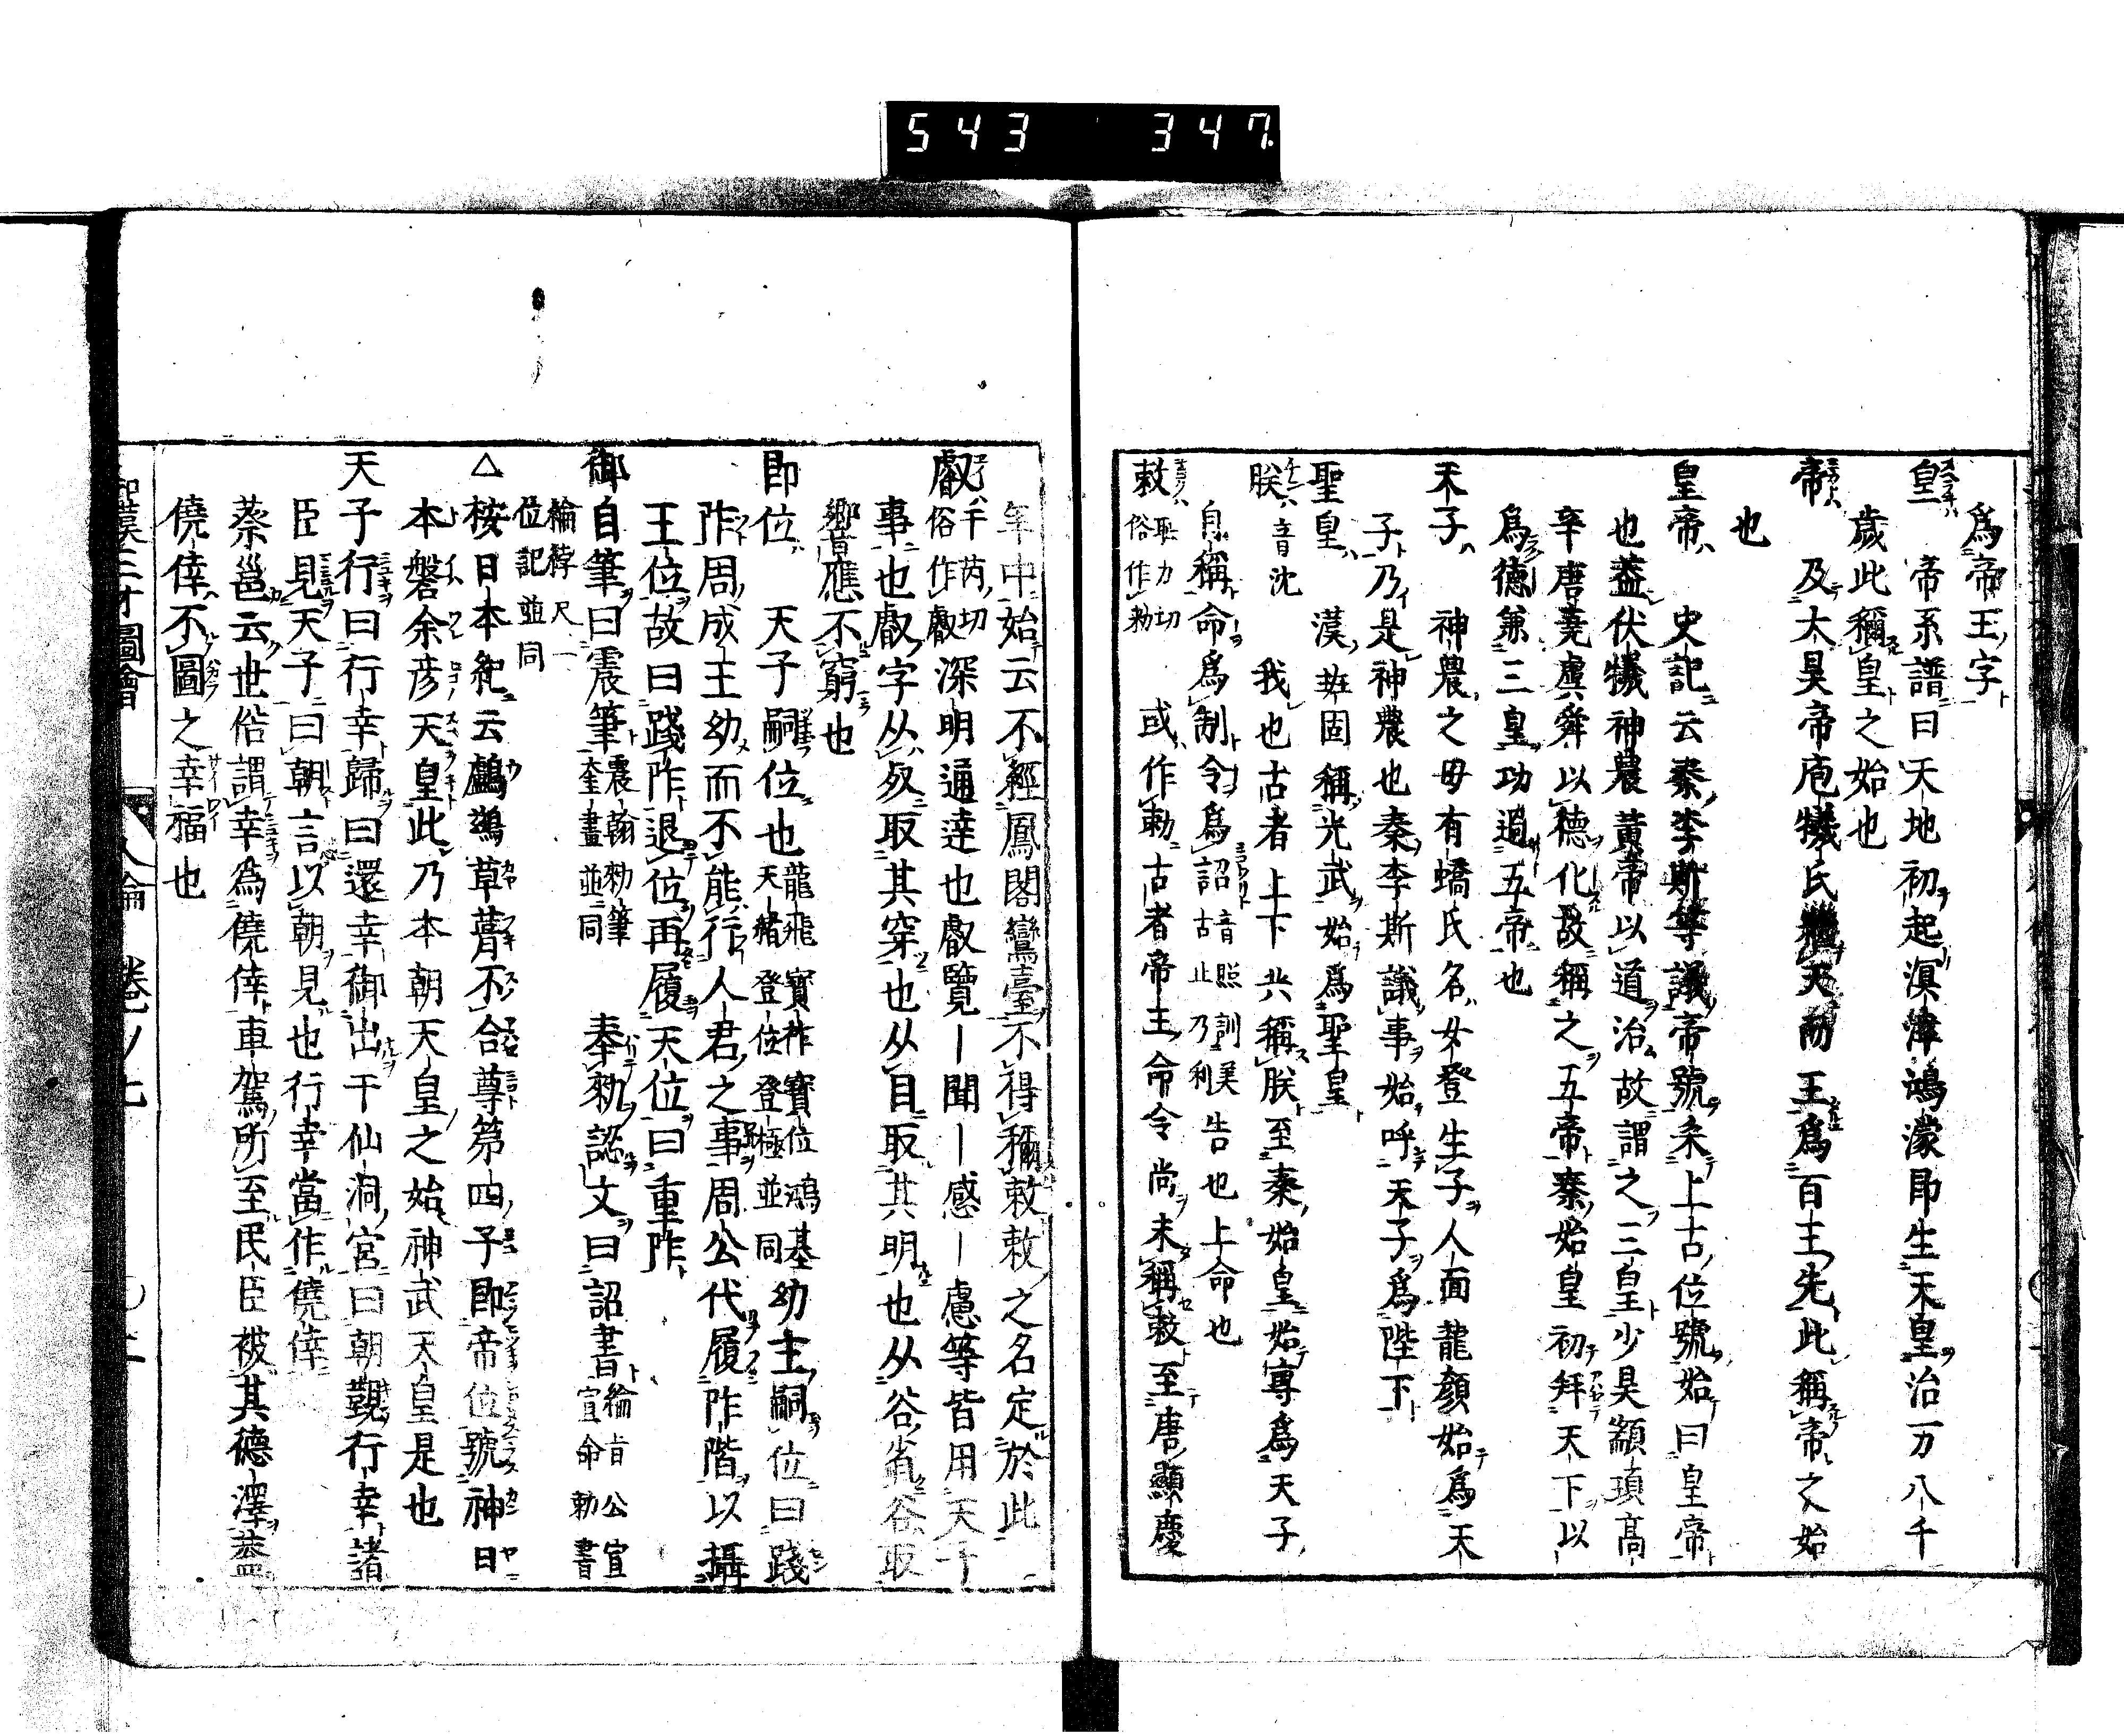 543 347
爲帝王字
皇 帝系譜曰天地初起溟涬鴻濛即生天皇治一万八千
歲此稱皇之始也
帝 及大昊帝庖犧氏繼天而王爲百王先此稱帝之始
也
皇帝 史記云秦李斯等議帝號采上古位號始曰皇帝
也蓋伏犧神農黃帝以道治故謂之三皇少昊顓頊高
辛唐堯虞舜以德化故稱之五帝秦始皇初并天下以
爲德兼三皇功過五帝也
天子 神農之母有蟜氏名女登生子人面龍顏始爲天
子乃是神農也秦李斯議事始呼天子爲陛下
聖皇 漢班固稱光武始爲聖皇
朕 音沈 我也古者上下共稱朕至秦始皇始專爲天子
自稱命爲制令爲詔 音照訓美古止乃利 告也上命也
敕 耻力切俗作勅 或作勑古者帝王命令尚未稱敕至唐顯慶
年中始云不經鳳閣鸞臺不得稱敕敕之名定於此
叡 千芮切俗作睿 深明通達也叡覽ー聞ー感ー慮等皆用天子
事也叡字从𣦼取其穿也从目取其明也从谷省谷取
響應不窮也
即位 天子嗣位也 龍飛寶祚寶位鴻基天緒登位登極並同 幼主嗣位曰踐
阼周成王幼而不能行人君之事周公代履阼階以攝
王位故曰踐阼退位再履天位曰重阼
御自筆曰震筆 震翰勅筆奎畫並同 奉勅認文曰詔書 綸旨公宣宣命勅書
綸綍尺一位記並同
△桉日本紀云鸕鷀草葺不合尊第四子即帝位號神日
本磐余彦天皇此乃本朝天皇之始神武天皇是也
天子行曰行幸歸曰還幸御出于仙洞宮曰朝覲行幸諸
臣見天子曰朝言以朝見也行幸當作僥倖
蔡邕云世俗謂幸爲僥倖車駕所至民臣被其德澤蓋
僥倖不圖之幸福也
和漢三才圖會 人倫 卷ノ七